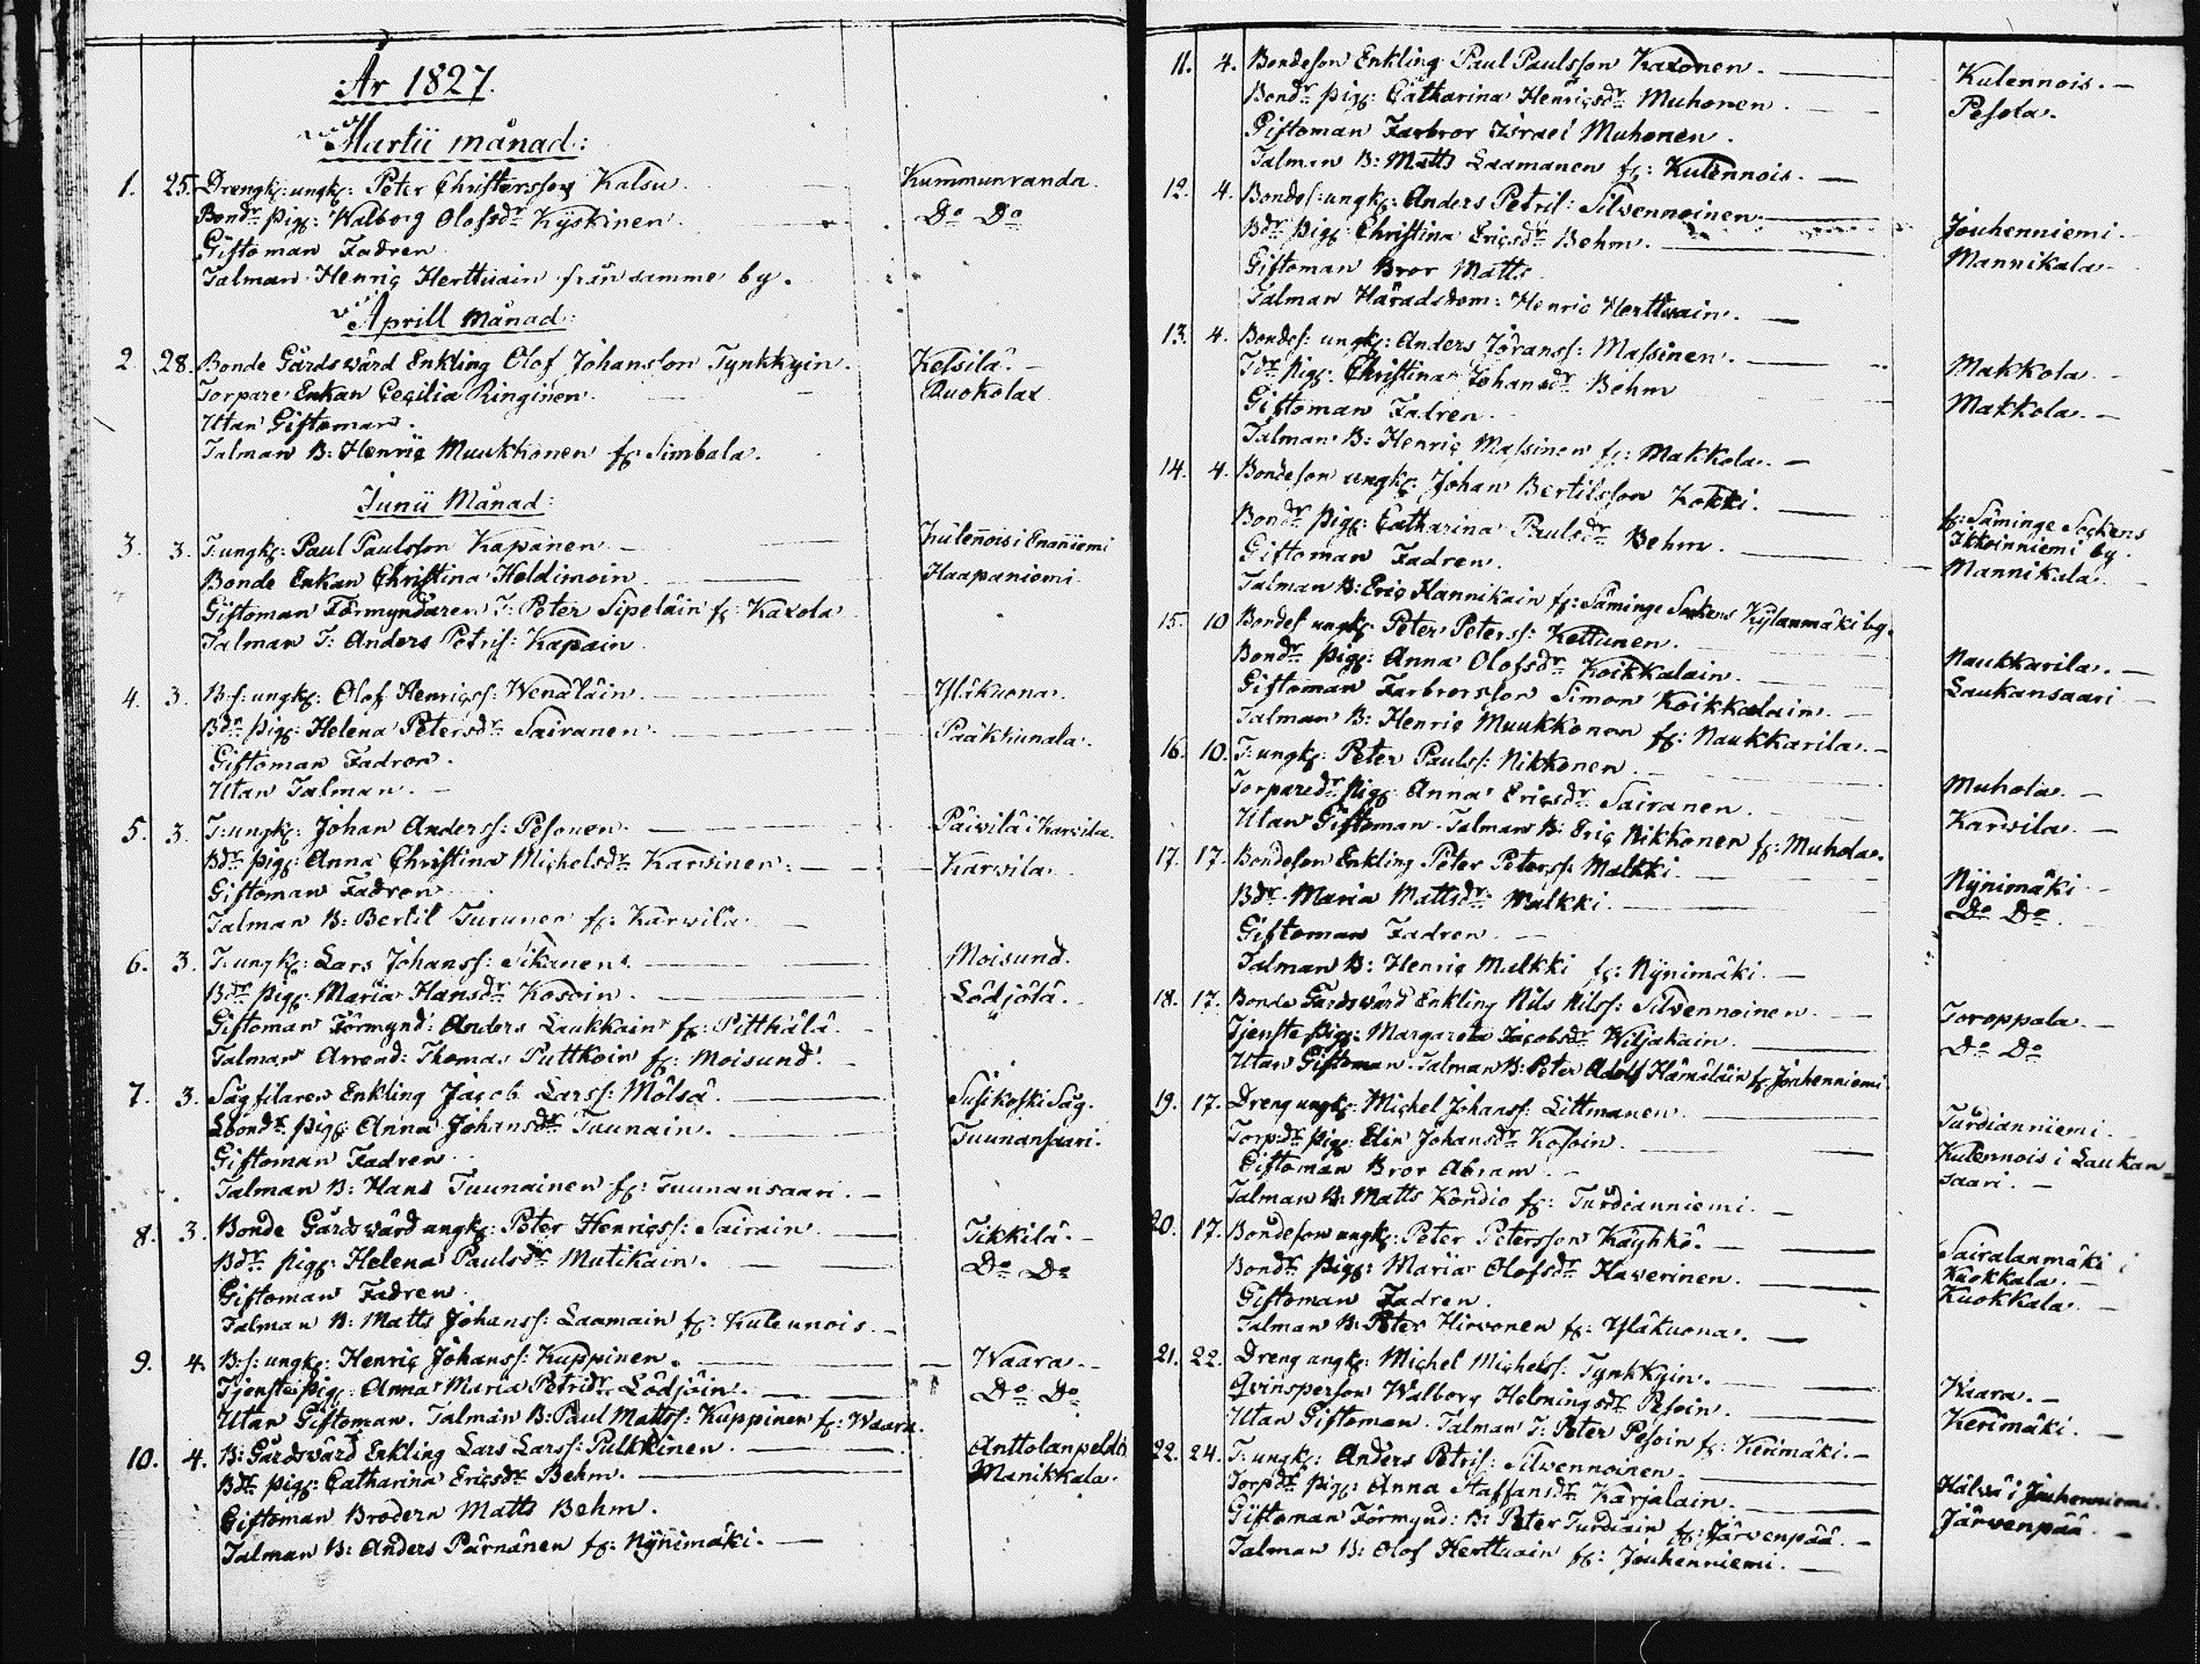 År 1827.
Martii månad:
1. 25. Drengk: ungk: Peter Christersson Kalsu. Kummunranda.
Bondr pig: Walborg Olofsdr Kyskinen. Do Do
Giftoman Fadren
Talman Henric Herttuain från samme by.
Aprill Månad:
2. 28. Bonde Gårdswärd Enkling Olof Johansson Tynkkyin. Kessilä.
Torpare Enkan Cecilia Ringinen. Ruokolax
Utan Giftoman.
Talman B: Henric Muukkonen fr: Simbala.
Junii Månad:
3. 3. T: ungk: Paul Paulsson Kapanen Kulennois i Enanniemi
Bonde Enkan Christina Heldimoin. Haapaniemi
Giftoman Förmyndaren T: Peter Sipeläin fr: Kaxola
Talman T: Anders Petris: Kapain
4. 3. B:s: ungk: Olof Henricss: Wenäläin. Yläkuona.
Bdr pig: Helena Petersdr Sairanen. Pääkkunala.
Giftoman Fadren.
Utan Talman.
5. 3. T: ungk: Johan Anderss: Pesonen. Päivilä i Karvila.
Bdr pig: Anna Christina Michelsdr Karvinen. Karvila.
Giftoman Fadren
Talman B: Bertil Turunen fr: Karvila
6. 3. T: ungk: Lars Johanss: Sikanen. Moisund.
Bdr pig: Maria Hansdr Kosoin. Lödjölä.
Giftoman Förmynd: Anders Laukkain fr: Pittkälä.
Talman Arrend: Thomas Puttkoin fr: Moisund.
7. 3. Sågfilaren Enkling Jacob Larss: Mölsä. Susikoski Såg.
Lbondr pig: Anna Johansdr Tuunain. Tuunansaari.
Giftoman Fadren
Talman B: Hans Tuunainen fr: Tuunansaari.
8. 3. Bonde Gårdswärd ungk: Peter Henricss: Sairain. Tikkilä.
Bdr pig: Helena Paulsdr Mutikain. Do Do
Giftoman Fadren
Talman B: Matts Johanss: Laamain fr: Kulennois.
9. 4. B:s: ungk: Henric Johanss: Kuppinen. Waara.
Tjenste pig: Anna Maria Petridr Lödjöin. Do Do
Utan Giftoman. Talman B: Paul Mattss: Kuppinen fr: Waara.
10. 4. B: Gårdswärd Enkling Lars Larss: Pulkkinen. Anttolanpeldo
Bdr pig: Catharina Ericsdr Behm. Manikkala.
Giftoman Brodern Matts Behm.
Talman B: Anders Pärnänen fr: Nynimäki.
11. 4. Bondeson Enkling Paul Paulsson Kaxonen. Kulennois.
Bondr pig: Catharina Henricsdr Muhonen. Pesola.
Giftoman Farbror Israel Muhonen.
Talman B: Matts Laamanen fr: Kulennois.
12. 4. Bondes: ungk: Anders Petris: Silvennoinen. Jouhenniemi.
Bdr pig: Christina Ericsdr Behm. Mannikala.
Giftoman Bror Matts
Talman Häradsdom: Henric Herttuain.
13. 4. Bondes: ungk: Anders Jöranss: Massinen. Makkola.
Tdr pig: Christina Johansdr Behm Makkola.
Giftoman Fadren
Talman B: Henric Massinen fr: Makkola.
14. 4. Bondeson ungk: Johan Bertilsson Kokki. fr: Säminge Sockens Ikkoinniemi by.
Bondr pig: Catharina Paulsdr Behm. Mannikala.
Giftoman Fadren.
Talman B: Eric Hannikain fr: Säminge Sockens Kylänmäki by.
15. 10 Bondes ungk: Peter Peterss: Kettunen. Naukkarila.
Bondr pig: Anna Olofsdr Koikkalain. Laukansaari
Giftoman Farbrorsson Simon Koikkalain.
Talman B: Henric Muukkonen fr: Naukkarila.
16. 10. T: ungk: Peter Paulss: Nikkonen. Muhola.
Torparedr pig: Anna Ericsdr Sairanen. Karvila.
Utan Giftoman. Talman B: Eric Nikkonen fr: Muhola.
17. 17. Bondeson Enkling Peter Peterss: Malkki. Nynimäki
Bdr Maria Mattsdr Malkki. Do Do
Giftoman Fadren.
Talman B: Henric Malkki fr: Nynimäki.
18. 17. Bonde Gårdswärd Enkling Nils Nilss: Silvennoinen. Toroppala.
Tjenste pig: Margareta Jacobsdr Wiljakain. Do Do
Utan Giftoman. Talman B: Peter Adolf Hämäläin fr: Jouhenniemi
19. 17. Dreng ungk: Michel Johanss: Littmanen. Turdianniemi.
Torpdr pig: Elin Johansdr Kosoin. Kulennois i Laukansaari.
Giftoman Bror Abram.
Talman B: Matts Kondio fr: Turdianniemi.
20. 17. Bondeson ungk: Peter Petersson Käyhkö. Sairalanmäki i Kuokkala.
Bondr pig: Maria Olofsdr Haverinen. Kuokkala.
Giftoman Fadren.
Talman B: Peter Hirvonen fr: Yläkuona.
21. 22. Dreng ungk: Michel Michelss: Tynkkyin. Waara.
Qvinsperson Walborg Helmingsdr Pesoin. Kerimäki.
Utan Giftoman. Talman T: Peter Pesoin fr: Kerimäki.
22. 24. T: ungk: Anders Petris: Silvennoinen. Hälvä i Jouhenniemi.
Torpdr pig: Anna Staffansdr Karjalain. Järvenpää.
Giftoman Förmynd: B: Peter Turdiain fr: Järvenpää.
Talman B: Olof Herttuain fr: Jouhenniemi.